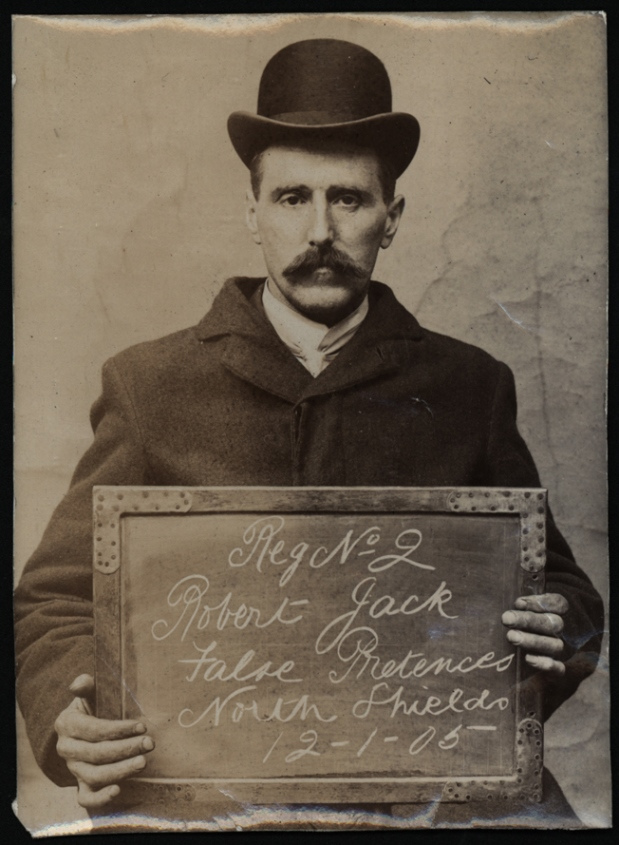 Reg Nº 2
Robert Jack
False Pretences
North Shields
12-1-05